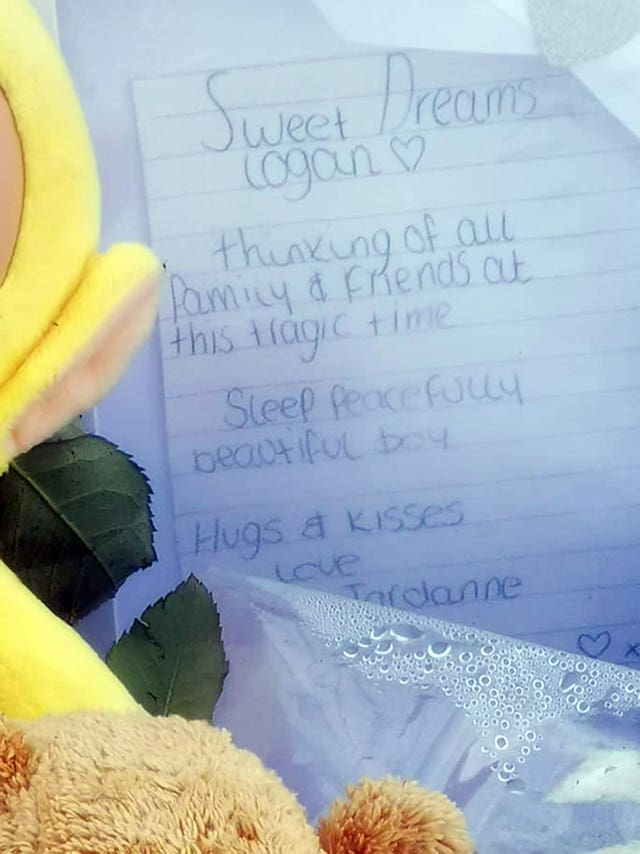 Sweet Dreams
Logan ♡
thinking of all
family & Friends at
this tragic time
Sleep peacefully
beautiful boy
Hugs & Kisses
Love
Jordanne
♡ x